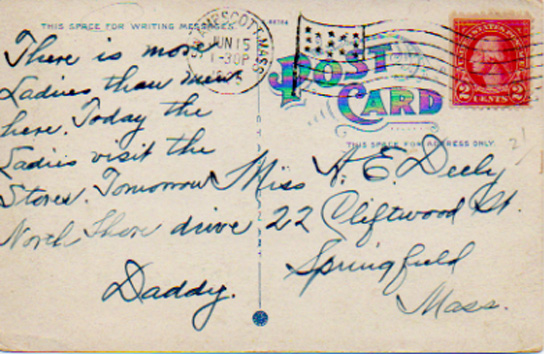 THIS SPACE FOR WRITING MESSAGES
There is more
Ladies than men
here. Today the
Ladies visit the
Stores. Tomorrow
North Shore drive
Daddy.
SWAMPSCOTT, MASS.
JUN 15
1-30P
POST
CARD
2 CENTS 2
THIS SPACE FOR ADDRESS ONLY.
Miss A. E. Deely
22 Cliftwood St.
Springfield
Mass.